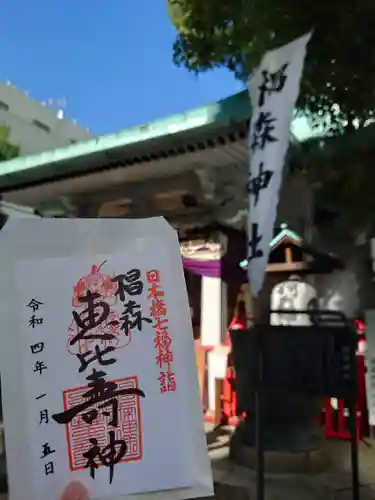 椙森神社
日本橋七福神詣
椙森
恵比寿神
令和四年一月五日